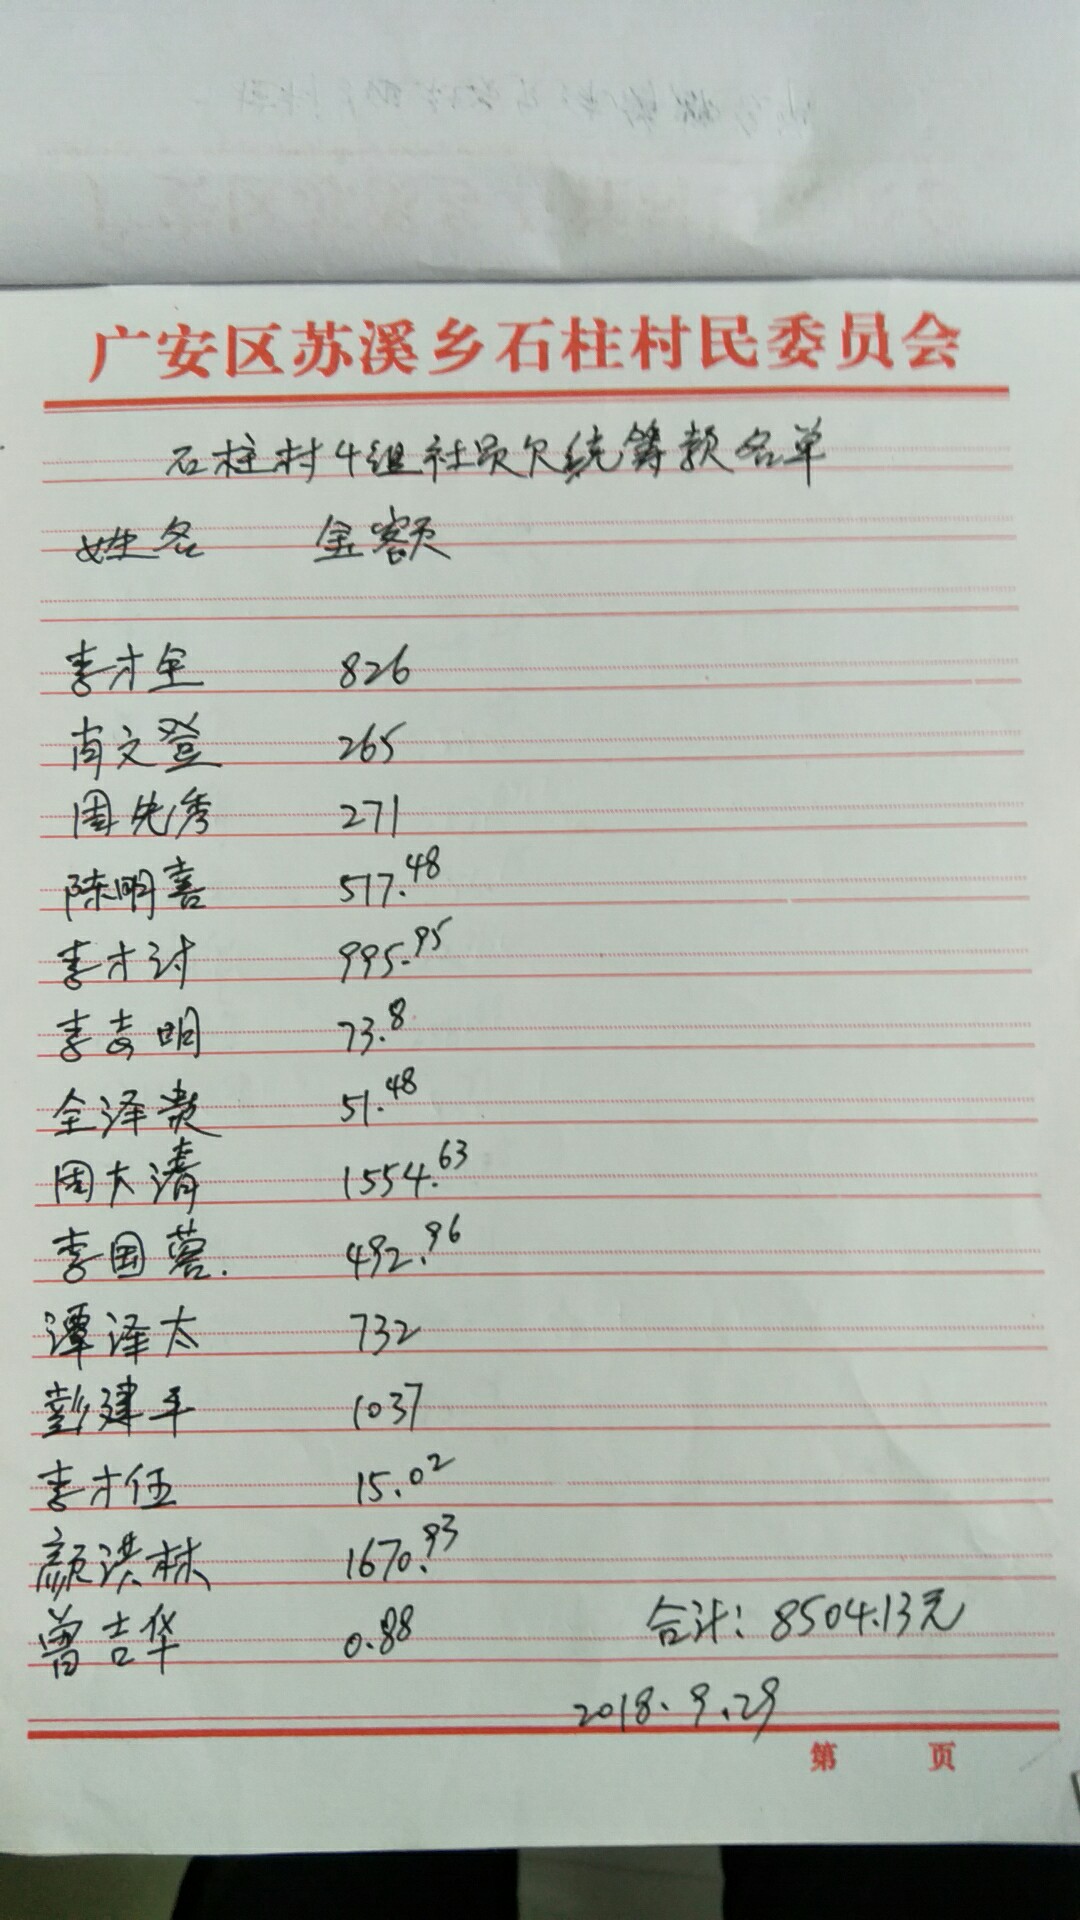 广安区苏溪乡石柱村民委员会
石柱村4组社员欠统筹款名单
姓名 金额
李才全 826
肖文登 265
周先秀 271
陈明喜 517.48
李才讨 995.95
李吉明 73.8
全泽贵 51.48
周大清 1554.63
李国蓉. 492.96
谭泽太 732
彭建平 1037
李才伍 15.02
颜洪林 1670.93
曾吉华 0.88 合计:8504.13元
2018.9.29
第 页